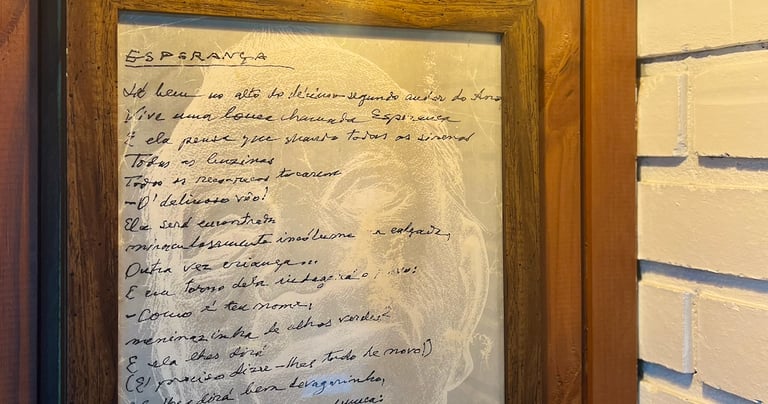 ESPERANÇA
Lá bem no alto do décimo segundo andar do Ano
Vive uma louca chamada Esperança
E ela pensa que quando todas as sirenas
Todas as buzinas
Todos os reco-recos tocarem
- Ó delicioso vôo!
Ela será encontrada
miraculosamente incólume na calçada,
Outra vez criança...
E em torno dela indagará o povo:
- Como é teu nome,
meninazinha de olhos verdes?
E ela lhes dirá
(É preciso dizer-lhes tudo de novo!)
lhes dirá bem devagarinho,